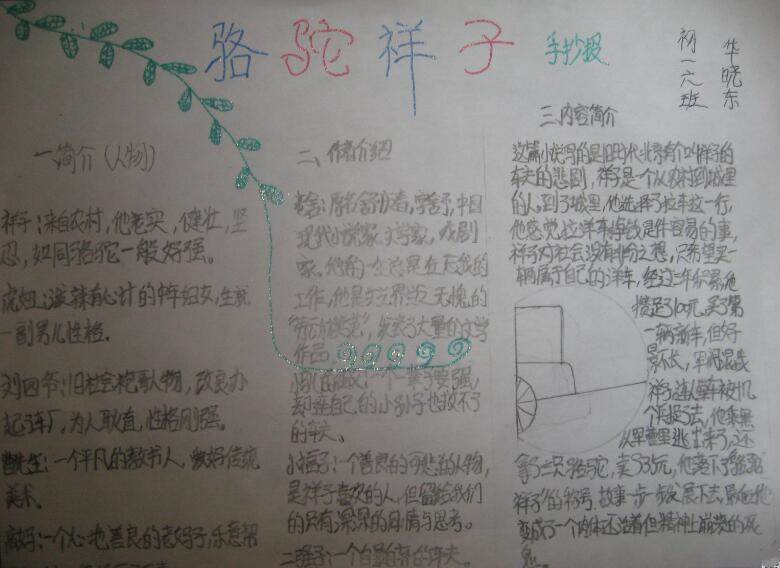 骆驼祥子 手抄报
初一六班
华晓东
一、简介(人物)
祥子:来自农村,他老实,健壮,坚
忍,如同骆驼一般好强。
虎妞:泼辣有心计的中年妇女,生就
一副男儿性格。
刘四爷:旧社会袍哥人物,改良办
起了车厂,为人耿直,性格刚强。
曹先生:一个平凡的教书人,爱好传统
美术。
高妈:一个心地善良的老妈子,乐意帮
二、作者介绍
老舍:原名舒庆春,字舍予,中国
现代小说家,文学家,戏剧
家。他的一生总是在忘我的
工作,他是文艺界当之无愧的
“劳动模范”,发表了大量的文学
作品。
一个一辈子要强,
却连自己的小孙子也救不了
的车夫。
小福子:一个善良的可悲的人物,
是祥子喜欢的人,但留给我们
的只有深深的同情与思考。
二强子:一个自暴自弃的车夫。
三、内容简介
这篇小说写的是旧时代北京有个叫祥子的
车夫的悲剧,祥子是个从农村到城里
的人,到了城里,他选择了拉车这一行,
他感觉拉洋车挣钱是件容易的事,
祥子对社会没有非份之想,只希望买
一辆属于自己的洋车,经过三年积累,他
攒足了100元,买了第
一辆新车,但好
景不长,军阀混战
祥子连人带车被
他乘黑
从军营里逃出来了,还
拿了三只骆驼,卖了35元,他落下了“骆驼
祥子”的符号,故事一步一步发展下去,最后他
变成了一个肉体还活着但精神上崩溃的死
鬼。